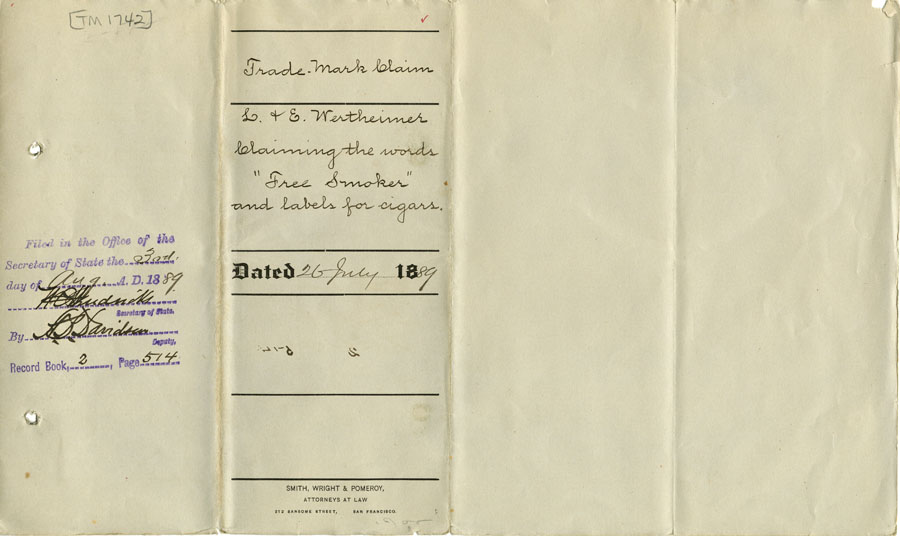 [TM 1742]
Trade-Mark Claim
L. & E. Wertheimer
Claiming the words
"Free Smoker"
and labels for cigars.
Dated 26 July 1889
SMITH, WRIGHT & POMEROY,
ATTORNEYS AT LAW
SAN FRANCISCO.
Filed in the Office of the
Secretary of State the 2nd.
day of Aug. A. D. 1889
Secretary of State.
By Davidson
Deputy,
Record Book, 2, Page 514